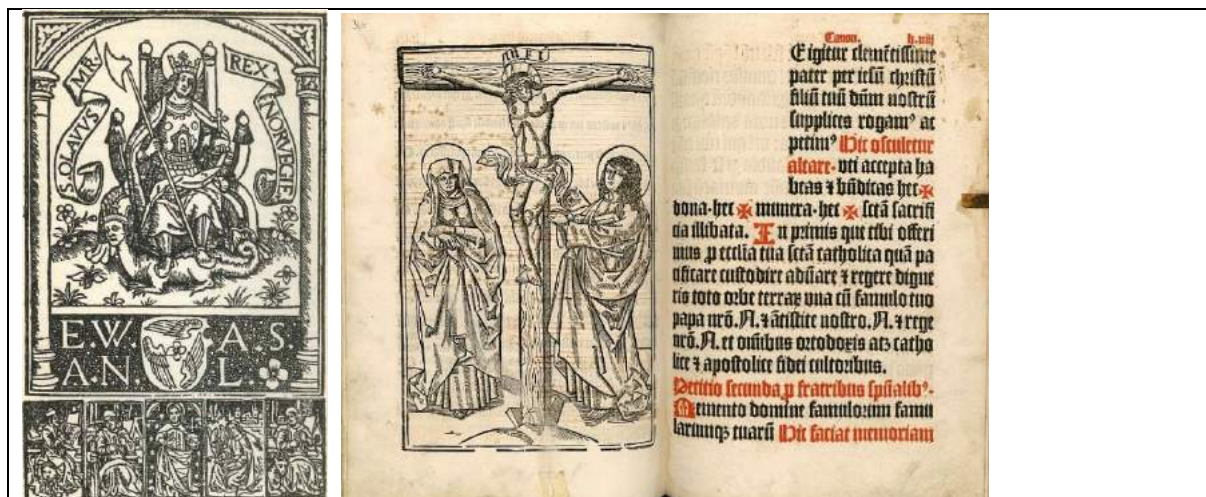 S. OLAVVS MR. REX NORVEGIE
E. W. A. S.
A. N. L.
INRI
Canon. h. iiij
E igitur clemētissime
pater per iesū christū
filiū tuū dūm nostrū
supplices rogam⁹ ac
petim⁹ Hic osculetur
altare. vti accepta ha
beas ⁊ bn̄dicas hec ✠
dona. hec ✠ munera. hec ✠ sctā sacrifi
cia illibata. In primis que tibi offeri
mus ꝓ ecclīa tua sctā catholica quā pa
cificare custodire adūare ⁊ regere digne
ris toto orbe terraꝝ vna cū famulo tuo
papa nrō. N. ⁊ ātistite nostro. N. ⁊ rege
nrō. N. et omībus ortodoxis atqꝫ catho
lice ⁊ apostolice fidei cultoribus.
Petitio secunda ꝓ fratribus spūalib⁹.
Memento domine famulorum famu
larumqꝫ tuarū Hic faciat memoriam